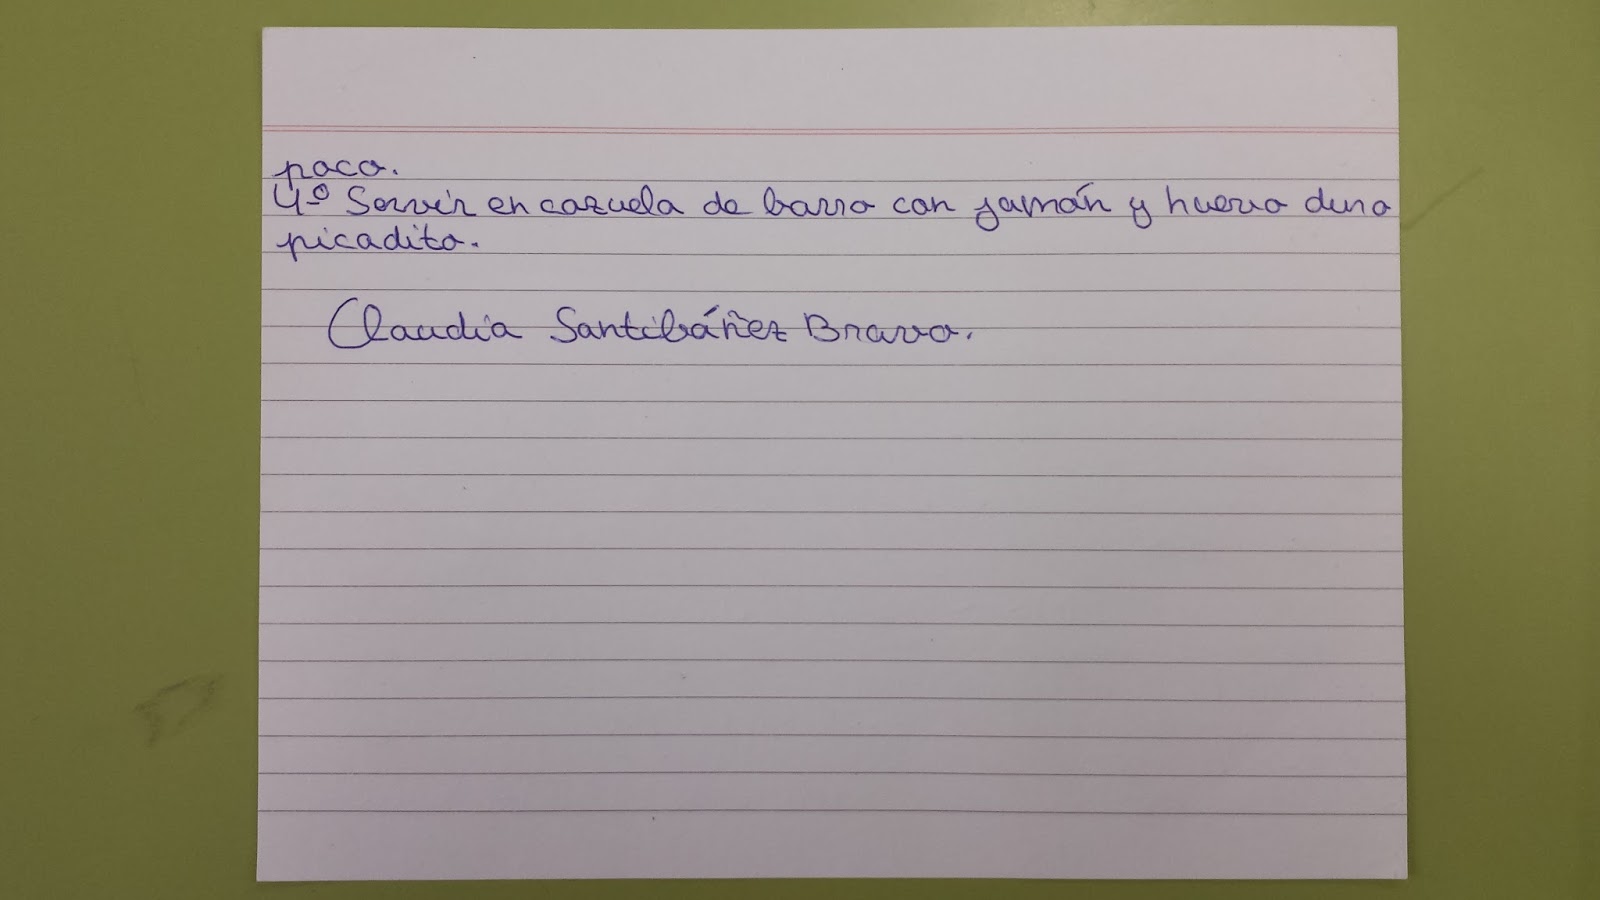 poco.
4º Servir en cazuela de barro con jamón y huevo duro
picadito.
Claudia Santibáñez Bravo.